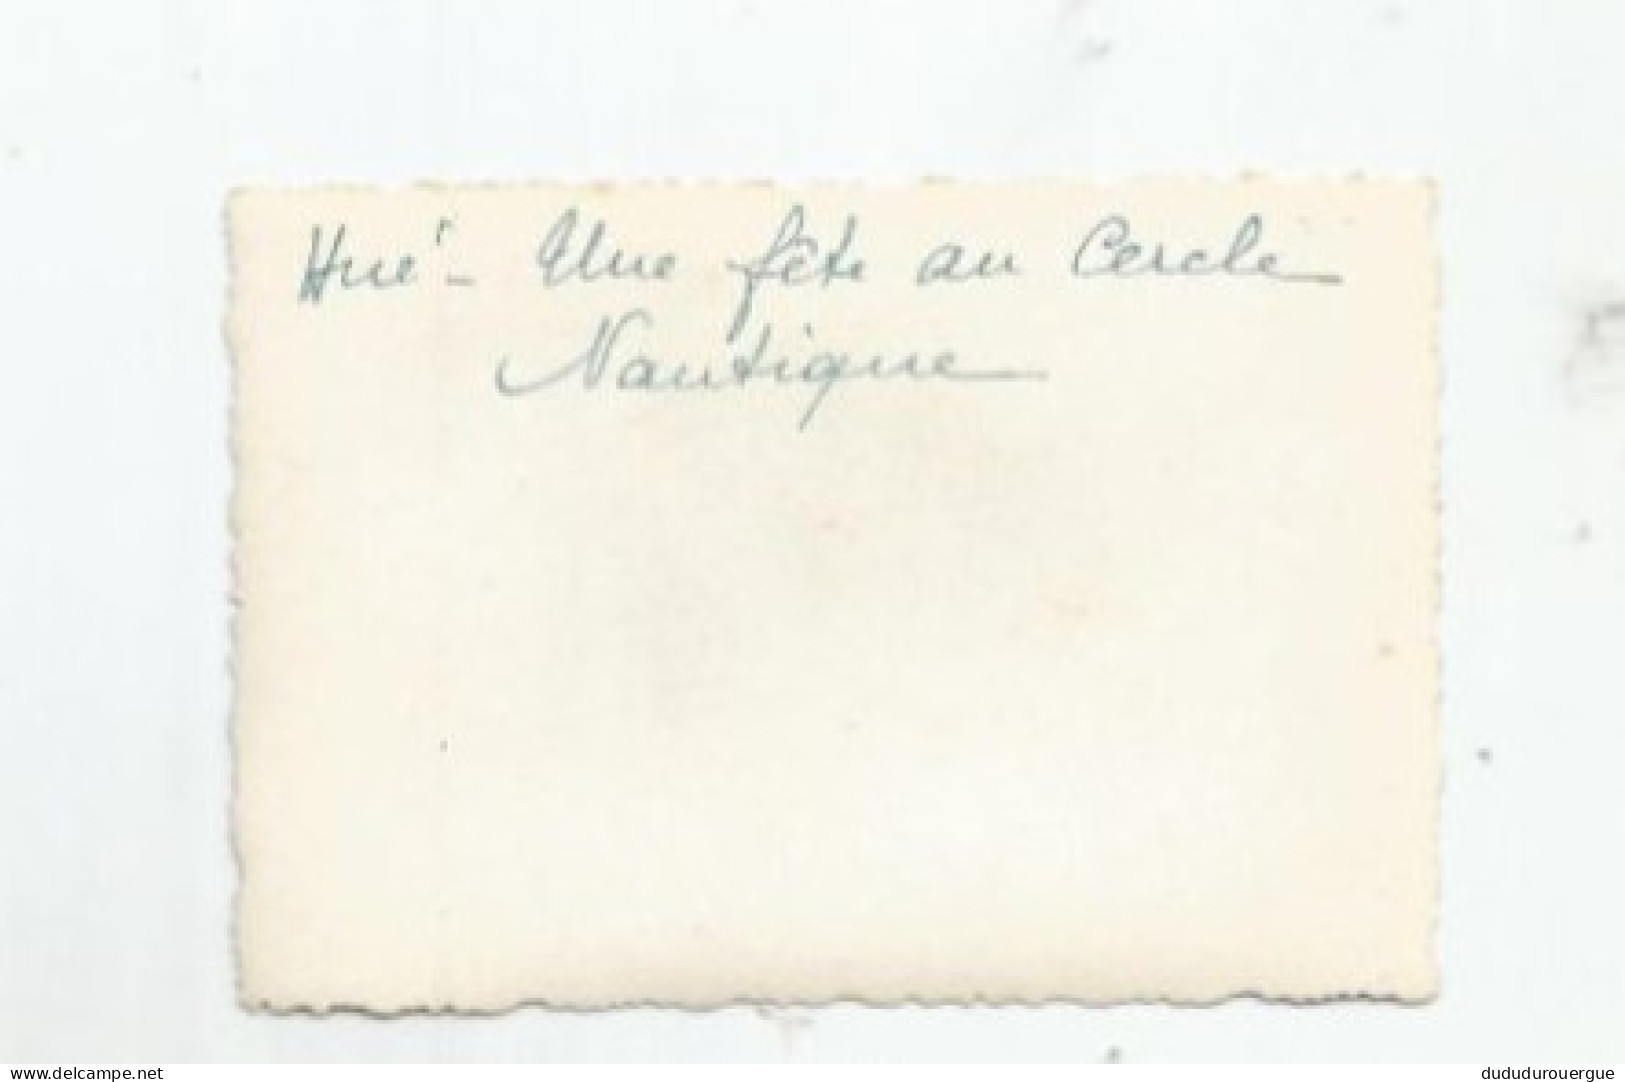 Hué - Une fête au Cercle
Nautique
www.delcampe.net
dududurouergue